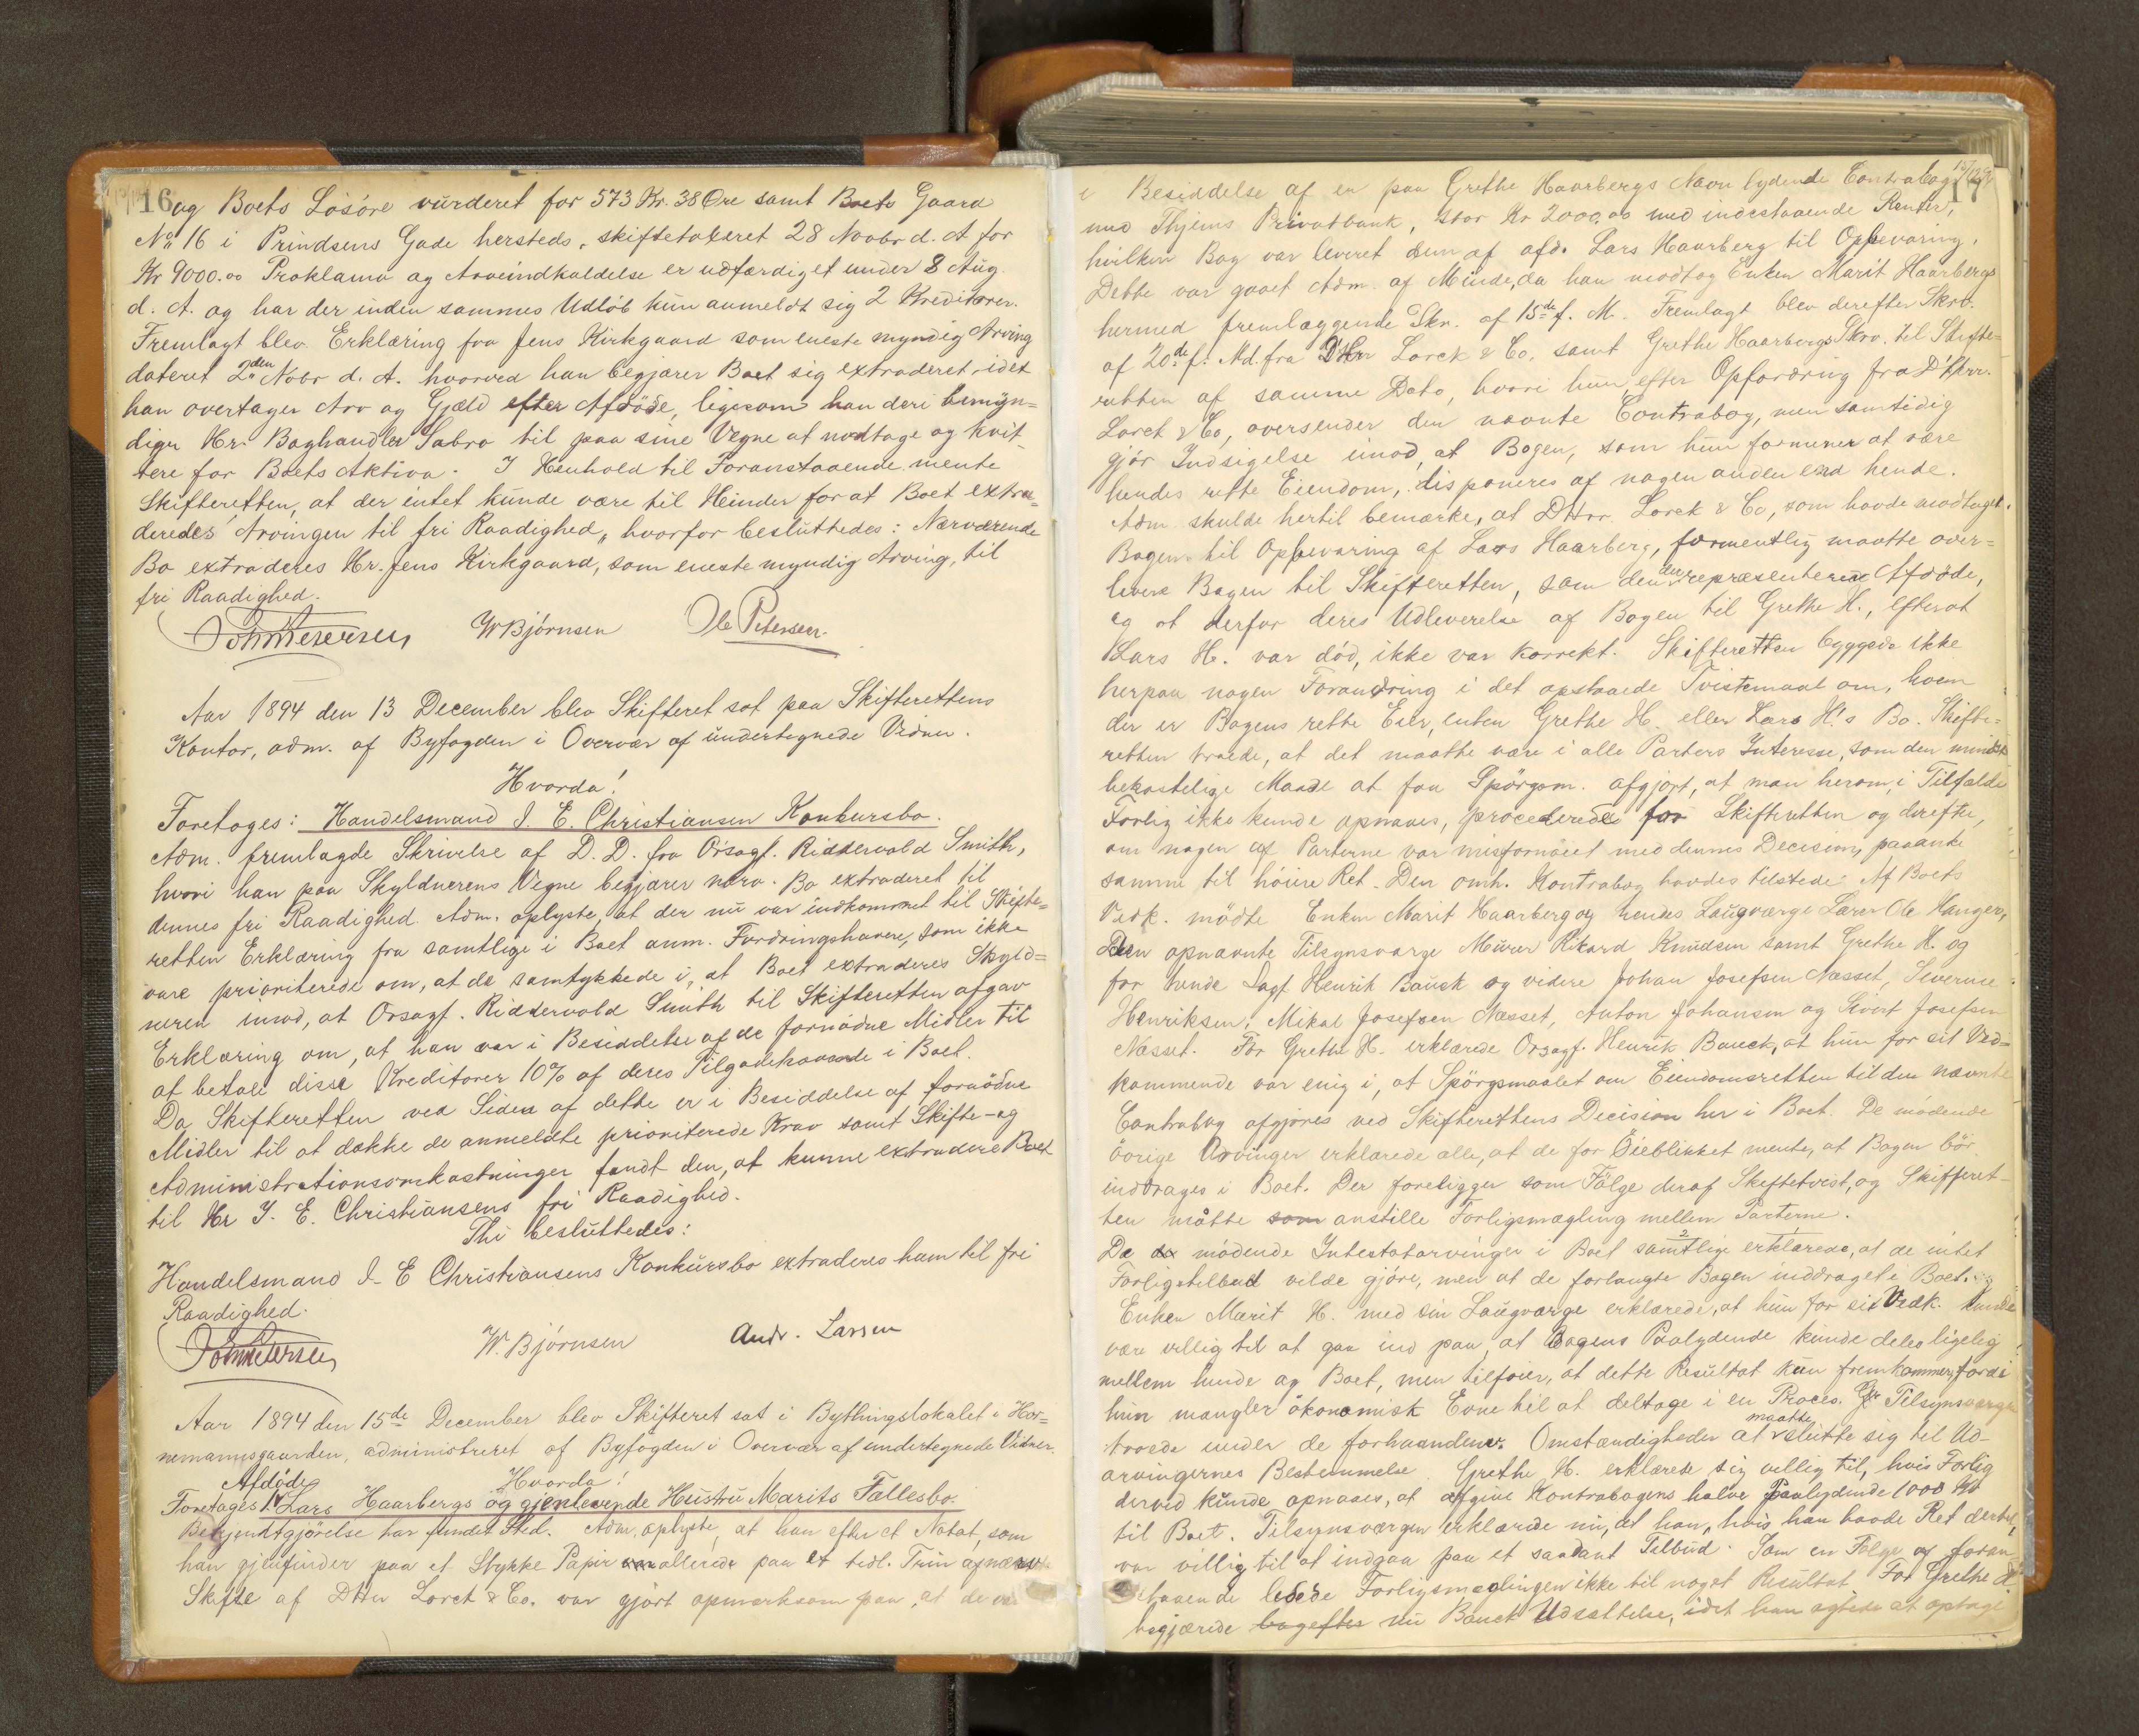 16 og Boets Løsøre vurderet for 573 Kr. 38 Øre samt Boets Gaard
No 16 i Prindsens Gade hersteds, skiftetakseret 28 Novbr d. A. for
Kr 9000.00 Proklama og Arveindkaldelse er udfærdiget under 8 Aug.
d. A. og har der inden sammes Udløb kun anmeldt sig 2 Kreditorer.
Fremlagt blev Erklæring fra Jens Kirkgaard som eneste myndig Arving
dateret 2den Novbr d. A. hvorved han begjærer Boet sig extraderet idet
han overtager Arv og Gjæld efter Afdøde, ligesom han deri bemyn=
diger Hr. Boghandler Sabro til paa sine Vegne at modtage og kvit-
tere for Boets Aktiva. I Henhold til Foranstaaende mente
Skifteretten, at der intet kunde være til Hinder for at Boet extra=
deredes Arvingen til fri Raadighed, hvorfor besluttedes: Nærværende
Bo extraderes Hr. Jens Kirkgaard, som eneste myndig Arving, til
fri Raadighed.
W Bjørnsen Ole Petersen
Aar 1894 den 13 December blev Skifteret sat paa Skifterettens
Kontor, adm. af Byfogden i Overvær af undertegnede Vidner.
Hvorda!
Foretoges: Handelsmand J. E. Christiansen Konkursbo.
Adm. fremlagde Skrivelse af D. D. fra Orsagf. Riddervold Smith,
hvori han paa Skyldnerens Vegne begjærer nærv. Bo extraderet til
dennes fri Raadighed. Adm. oplyste, at der nu var indkommet til Skifte=
retten Erklæring fra samtlige i Boet anm. Fordringshavere, som ikke
vare prioriterede om, at de samtykkede i, at Boet extraderes Skyld=
neren imod, at Orsagf. Riddervold Smith til Skifteretten afgav
Erklæring om, at han var i Besiddelse af de fornødne Midler til
at betale disse Kreditorer 10% af deres Tilgodehavende i Boet.
Da Skifteretten ved Siden af dette er i Besiddelse af fornødne
Midler til at dække de anmeldte prioriterede Krav samt Skifte- og
Administrationsomkostninger fandt den, at kunne extradere Boet
til Hr J. E. Christiansens fri Raadighed.
Thi besluttedes:
Handelsmand J. E Christiansens Konkursbo extraderes ham til fri
Raadighed.
W. Bjørnsen Andr. Larsen
Aar 1894 den 15de December blev Skifteret sat i Bythingslokalet i Hor=
nemannsgaarden, administreret af Byfogden i Overvær af undertegnede Vidner.
Hvorda!
Foretoges 1. Afdøde Lars Haarbergs og gjenlevende Hustru Marits Fællesbo.
Bekjendtgjørelse har fundet Sted. Adm. oplyste, at han efter et Notat, som
han gjenfinder paa et Stykke Papir allerede paa et tidl. Trin af nærv.
Skifte af DHrr Lorck & Co. var gjort opmærksom paa, at de var
17
i Besiddelse af en paa Grethe Haarbergs Navn lydende Contrabog
med Thjems Privatbank, stor Kr 2000.00 med indestaaende Renter,
hvilken Bog var leveret dem af afd. Lars Haarberg til Opbevaring.
Dette var gaaet Adm. af Minde, da han modtog Enken Marit Haarbergs
hermed fremlæggende Skr. af 15de f. M. Fremlagt blev derefter Skrv.
af 20de f. Md. fra DHrr Lorck & Co. samt Grethe Haarbergs Skrv. til Skifte=
retten af samme Dato, hvori hun, efter Opfordring fra DHrr.
Lorck & Co, oversender den nævnte Contrabog, men samtidig
gjør Indsigelse imod, at Bogen, som hun formener at være
hendes rette Eiendom, disponeres af nogen anden end hende.
Adm. skulde hertil bemærke, at DHrr Lorck & Co, som havde modtaget
Bogen til Opbevaring af Lars Haarberg, formentlig maatte over=
levere Bogen til Skifteretten, som den der repræsenterede Afdøde,
og at derfor deres Udleverelse af Bogen til Grethe H., efterat
Lars H. var død, ikke var korrekt. Skifteretten byggede ikke
herpaa nogen Forandring i det opstaaede Tvistemaal om, hvem
der er Bogens rette Eier, enten Grethe H. eller Lars H's Bo. Skifte=
retten troede, at det maatte være i alle Parters Interesse, som den mindst
bekostelige Maade at faa Spørgsm. afgjort, at man herom, i Tilfælde
Forlig ikke kunde opnaaes, procederede for Skifteretten og derefter,
om nogen af Parterne var misfornøiet med dennes Decision, paaanke
samme til høiere Ret. Den omh. Kontrabog havdes tilstede. Af Boets
Vedk. mødte Enken Marit Haarberg og hendes Laugværge Lærer Ole Hanger,
Den opnævnte Tilsynsværge Murer Rikard Knudsen samt Grethe H. og
for hende Sagf. Henrik Bauck og videre Johan Josefsen Næsset, Severine
Henriksen, Mikal Josefsen Næsset, Anton Johansen og Sivert Josefsen
Næsset. For Grethe H. erklærede Orsagf. Henrik Bauck, at hun for sit Ved=
kommende var enig i, at Spørgsmaalet om Eiendomsretten til den nævnte
Contrabog afgjøres ved Skifterettens Decision her i Boet. De mødende
øvrige Arvinger erklærede alle, at de for Øieblikket mente, at Bogen bør
inddrages i Boet. Der foreligger som Følge deraf Skiftetvist, og Skifteret-
ten måtte som anstille Forligsmægling mellem Parterne.
De mødende Intestatarvinger i Boet samtlige erklærede, at de intet
Forligstilbud vilde gjøre, men at de forlangte Bogen inddraget i Boet.
Enken Marit H. med sin Laugværge erklærede, at hun for sit Vedk. kunde
være villig til at gaa ind paa, at Bogens Paalydende kunde deles ligelig
mellem hende og Boet, men tilføier, at dette Resultat kun fremkommer fordi
hun mangler økonomisk Evne til at deltage i en Proces. Tilsynsværgen
troede under de forhaandenv. Omstændigheder at maatte slutte sig til Ud-
arvingernes Bestemmelse. Grethe H. erklærede sig villig til, hvis Forlig
derved kunde opnaaes, at afgive Kontrabogens halve Paalydende 1000 Kr
til Boet. Tilsynsværgen erklærede nu, at han, hvis han havde Ret dertil,
var villig til at indgaa paa et saadant Tilbud. Som en Følge af foran
staaende ledede Forligsmæglingen ikke til noget Resultat. For Grethe H.
begjærede bagefter nu Bauck Udsættelse, idet han agtede at optage